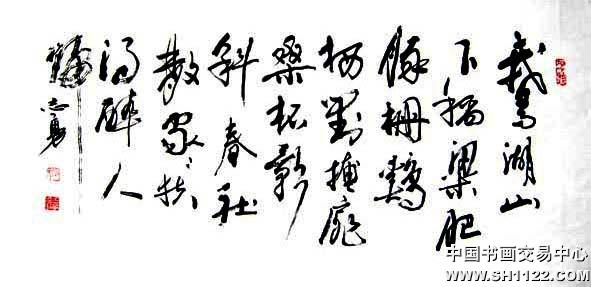 鵞湖山
下稻粱肥
豚栅鷄
栖對掩扉
桑柘影
斜春社
散家々扶
得醉人
歸 志勇
中国书画交易中心
WWW.SH1122.COM